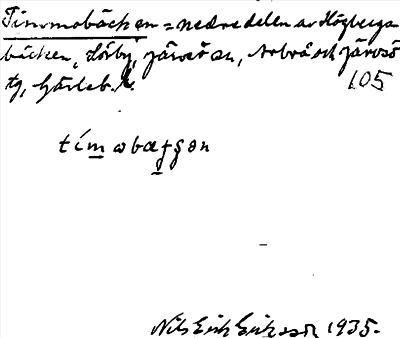 Timmobäcken = nedre delen av Högbergs-
bäcken, Hörby, Järvsö sn, Arbrå och Järvsö
tg, Gävleb. l.
105
tímobæggən
Nils Erik Eriksson 1935.